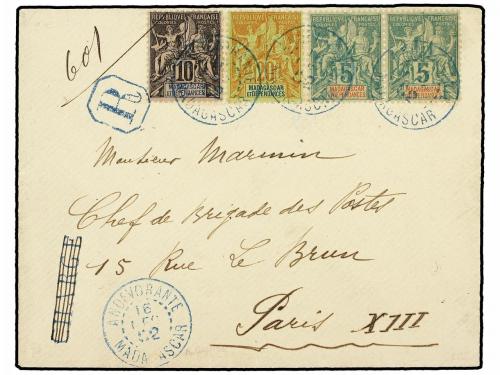 601
RÉPUBLIQUE FRANÇAISE
COLONIES POSTES
10
RÉPUBLIQUE FRANÇAISE
COLONIES POSTES
MADAGASCAR
ET DÉPENDANCES
RÉPUBLIQUE FRANÇAISE
COLONIES POSTES
5
MADAGASCAR
ET DÉPENDANCES
RÉPUBLIQUE FRANÇAISE
COLONIES POSTES
5
MADAGASCAR
ET DÉPENDANCES
MADAGASCAR
MADAGASCAR
R
Monsieur Marmin
Chef de Brigade des Postes
15 Rue Le Brun
Paris XIII
ANDEVORANTE
16
MADAGASCAR